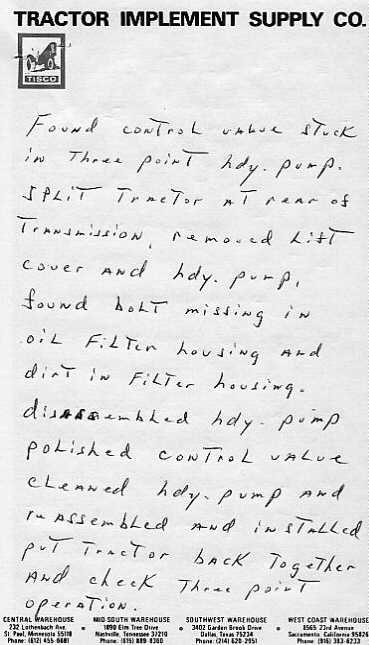 TRACTOR IMPLEMENT SUPPLY CO.
TISCO
Found control valve stuck
in Three point hdy. pump.
split Tractor at rear of
Transmission, removed Lift
cover and hdy. pump,
found bolt missing in
oil Filter housing and
dirt in Filter housing.
disassembled hdy. pump
polished control valve
cleaned hdy. pump and
reassembled and installed
put Tractor back Together
and check Three point
operation.
CENTRAL WAREHOUSE • MID-SOUTH WAREHOUSE • SOUTHWEST WAREHOUSE • WEST COAST WAREHOUSE
232 Lothenbach Ave. 1890 Elm Tree Drive 3402 Garden Brook Drive 8565 23rd Avenue
St. Paul, Minnesota 55118 Nashville, Tennessee 37210 Dallas, Texas 75234 Sacramento, California 95826
Phone: (612) 455-6681 Phone: (615) 889-8360 Phone: (214) 620-2951 Phone: (916) 383-6233